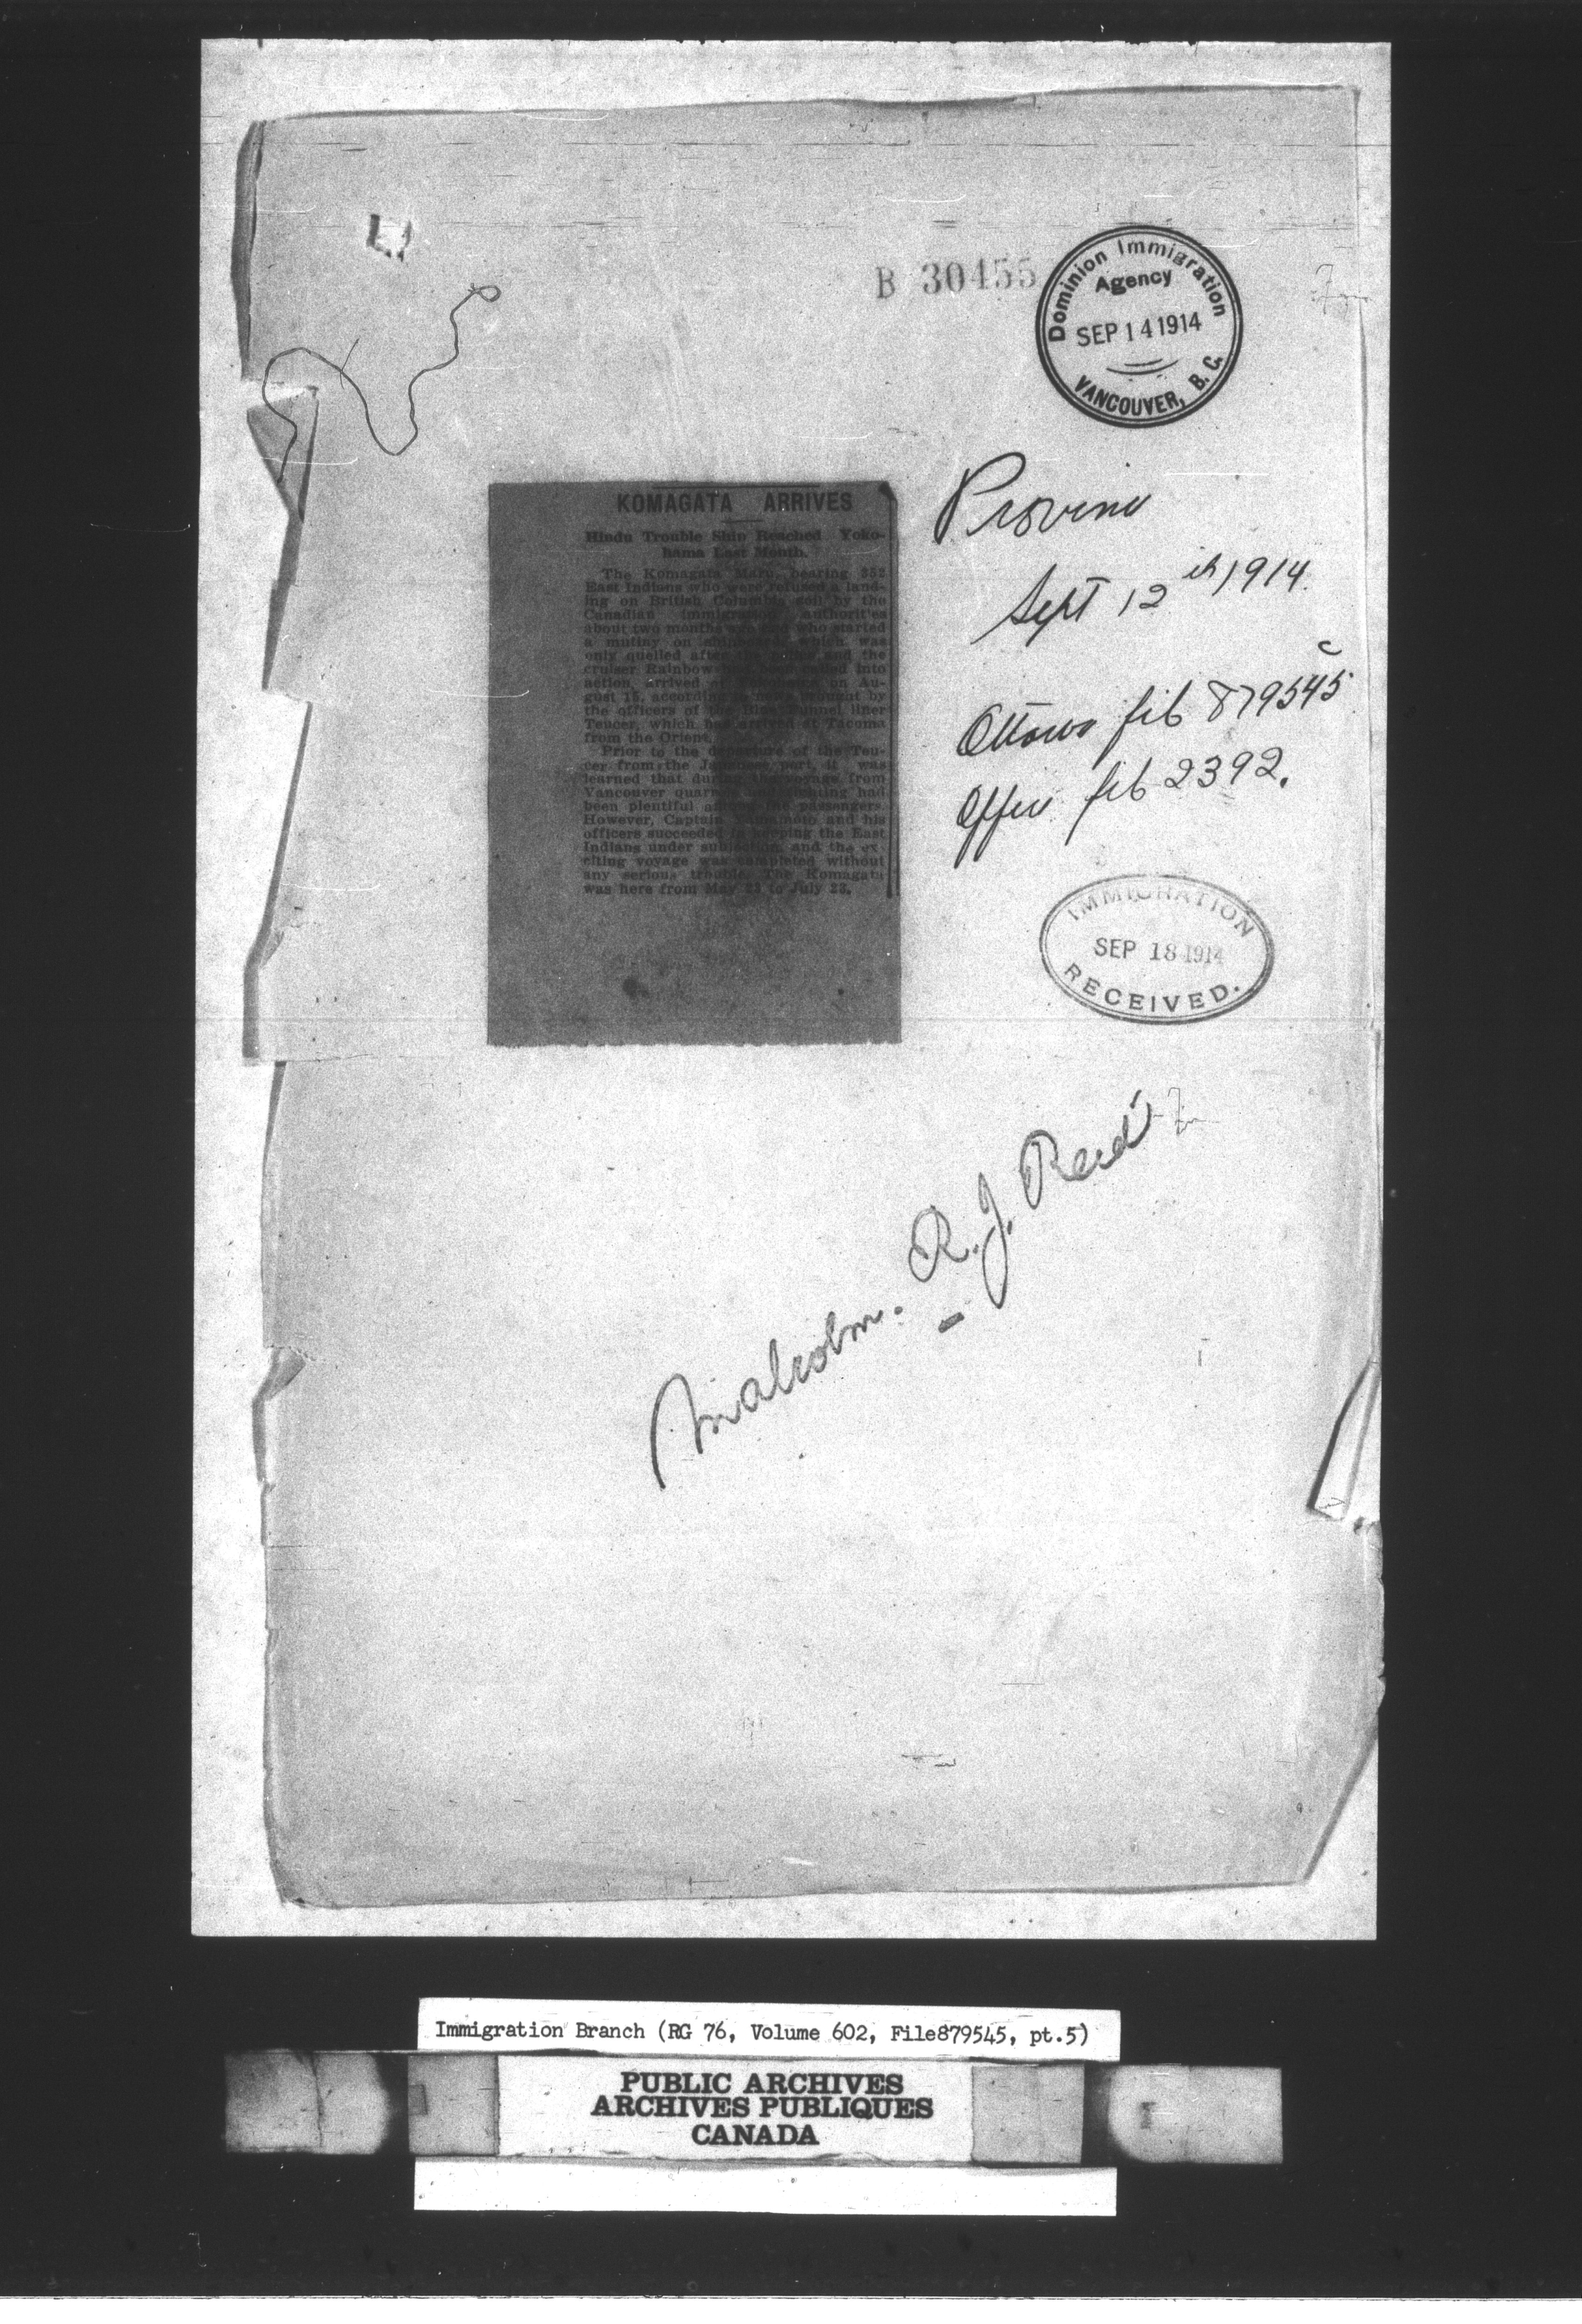 B 30455
Dominion Immigration
Agency
SEP 14 1914
VANCOUVER, B.C.
KOMAGATA ARRIVES
Hindu Trouble Ship Reached Yoko-
hama Last Month.
The Komagata Maru, bearing 352
East Indians who were refused a land-
ing on British Columbia soil by the
Canadian immigration authorities
about two months ago and who started
a mutiny on shipboard which was
only quelled after the police and the
cruiser Rainbow had been called into
action, arrived at Yokohama on Au-
gust 15, according to news brought by
the officers of the Blue Funnel liner
Teucer, which has arrived at Tacoma
from the Orient.
Prior to the departure of the Teu-
cer from the Japanese port, it was
learned that during the voyage from
Vancouver quarrels and fighting had
been plentiful among the passengers.
However, Captain Yamamoto and his
officers succeeded in keeping the East
Indians under subjection and the ex-
citing voyage was completed without
any serious trouble. The Komagata
was here from May 23 to July 23.
Province
Sept 12th 1914.
c
Ottawa file 879545
Office file 2392.
IMMIGRATION
SEP 18 1914
RECEIVED.
Malcolm. R. J. Reid
Immigration Branch (RG 76, Volume 602, File879545, pt.5)
PUBLIC ARCHIVES
ARCHIVES PUBLIQUES
CANADA